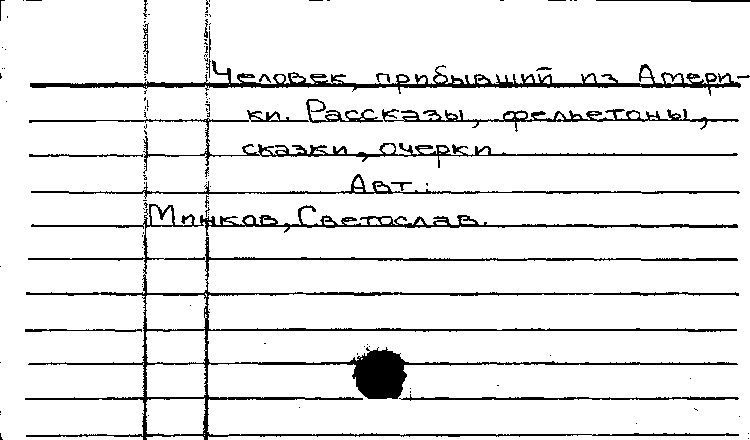 Человек, прибывший из Амери-
ки. Рассказы, фельетоны,
сказки, очерки.
Авт.:
Минков, Светослав.